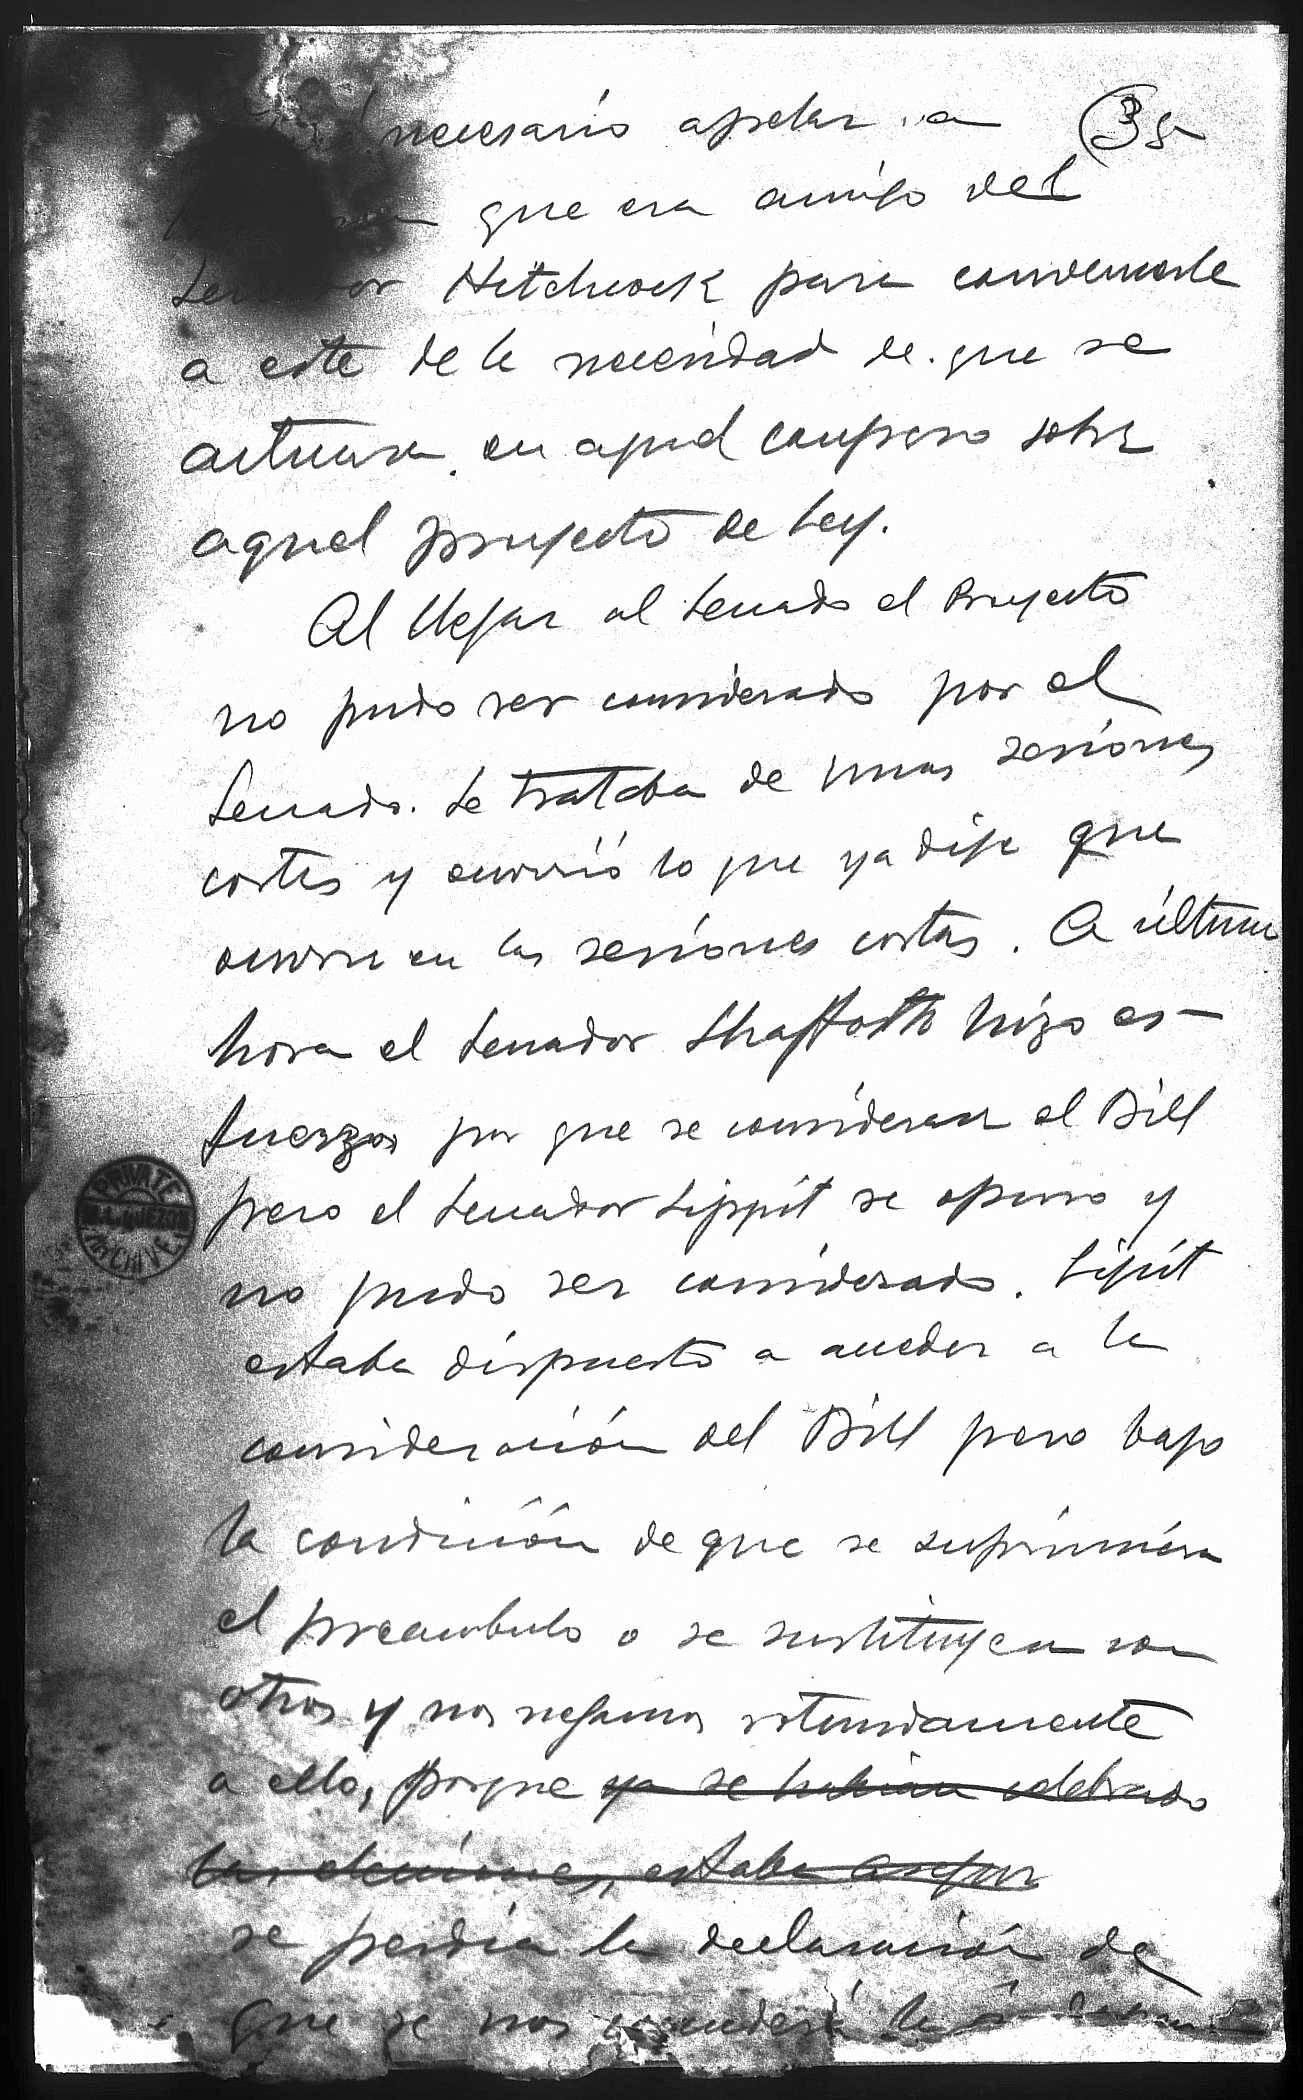 necesario apelar a 35
que era amigo del
Senador Hitchcock para convencerle
a este de la necesidad de que se
actuara en aquel congreso sobre
aquel proyecto de ley.
Al llegar al Senado el Proyecto
no pudo ser considerado por el
Senado. Se trataba de unas sesiones
cortes y ocurrió lo que ya dije que
ocurre en las sesiones cortas. A última
hora el Senador Shaffroth hizo es-
fuerzos por que se considerara el Bill
pero el Senador Lippit se opuso y
no pudo ser considerado. Lipit
estaba dispuesto a acceder a la
consideración del Bill pero bajo
la condición de que se suprimiera
el preambulo o se sustituyera con
otros y nos negamos rotundamente
a ello, porque ya se habian celebrado
las elecciones, estaba asegur
se perdia la declaración de
que se nos concederá la
PRIVATE
M.L. QUEZON
ARCHIVE